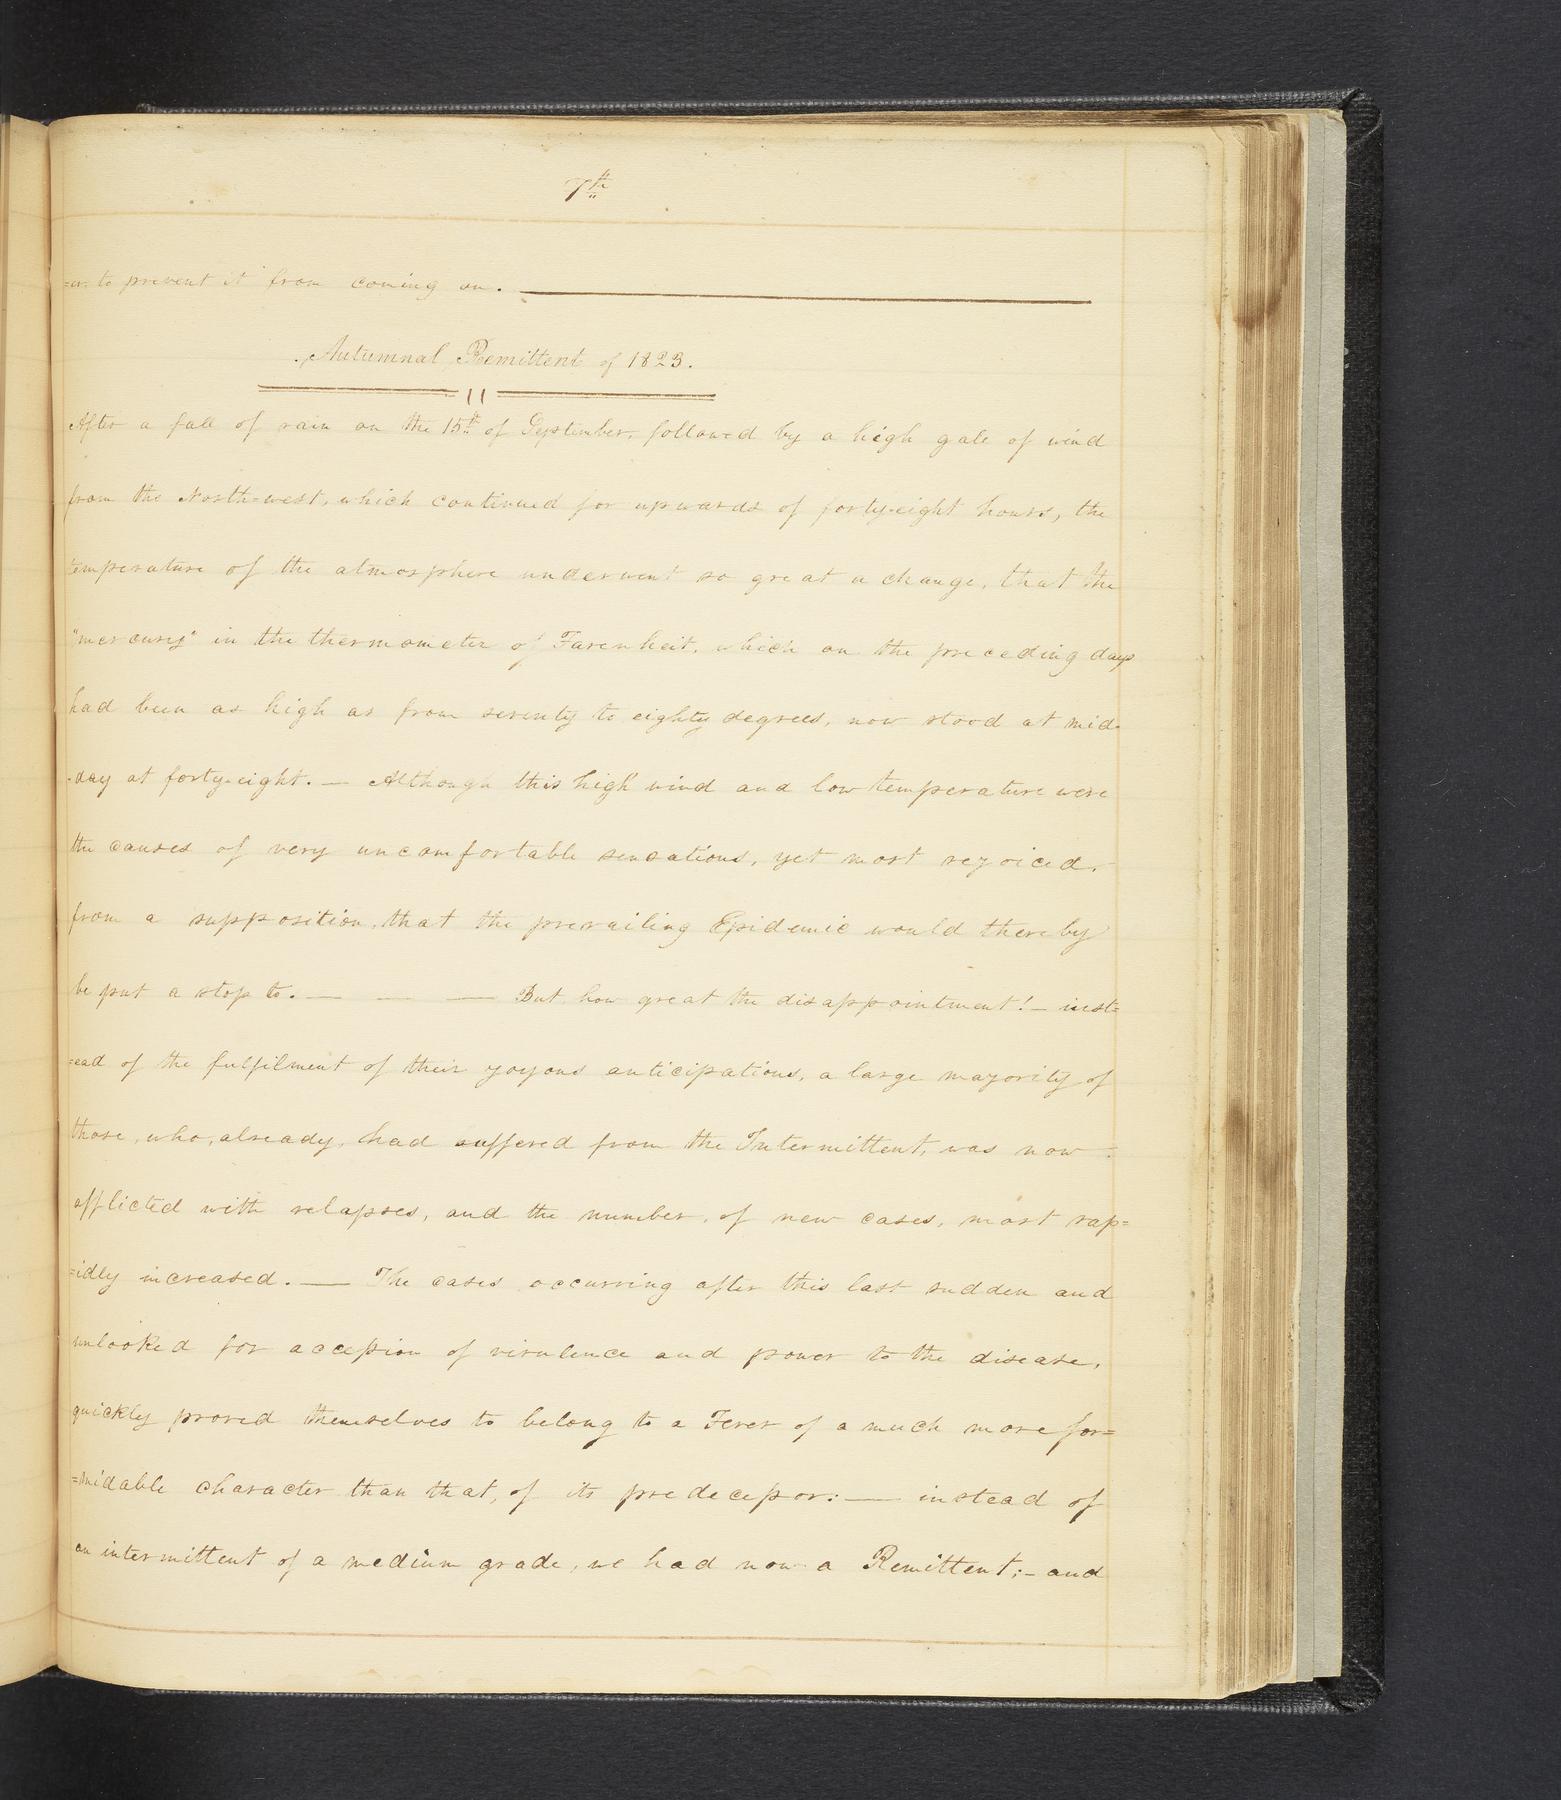 7th
=er to prevent it from coming on.
Autumnal Remittent of 1823.
After a fall of rain on the 15th of September, followed by a high gale of wind
from the North=west, which continued for upwards of forty-eight hours, the
temperature of the atmosphere underwent so great a change, that the
"mercury" in the thermometer of Farenheit, which on the preceding days
had been as high as from seventy to eighty degrees, now stood at mid-
-day at forty-eight. — Although this high wind and low temperature were
the causes of very uncomfortable sensations, yet most rejoiced,
from a supposition, that the prevailing Epidemic would thereby
be put a stop to. — — — But how great the disappointment! — inst=
=ead of the fulfilment of their joyous anticipations, a large majority of
those, who, already, had suffered from the Intermittent, was now
afflicted with relapses, and the number, of new cases, most rap=
=idly increased. — The cases occurring after this last sudden and
unlooked for accession of virulence and power to the disease,
quickly proved themselves to belong to a Fever of a much more for=
=midable character than that, of its predecessor: — instead of
an intermittent of a medium grade, we had now a Remittent; — and